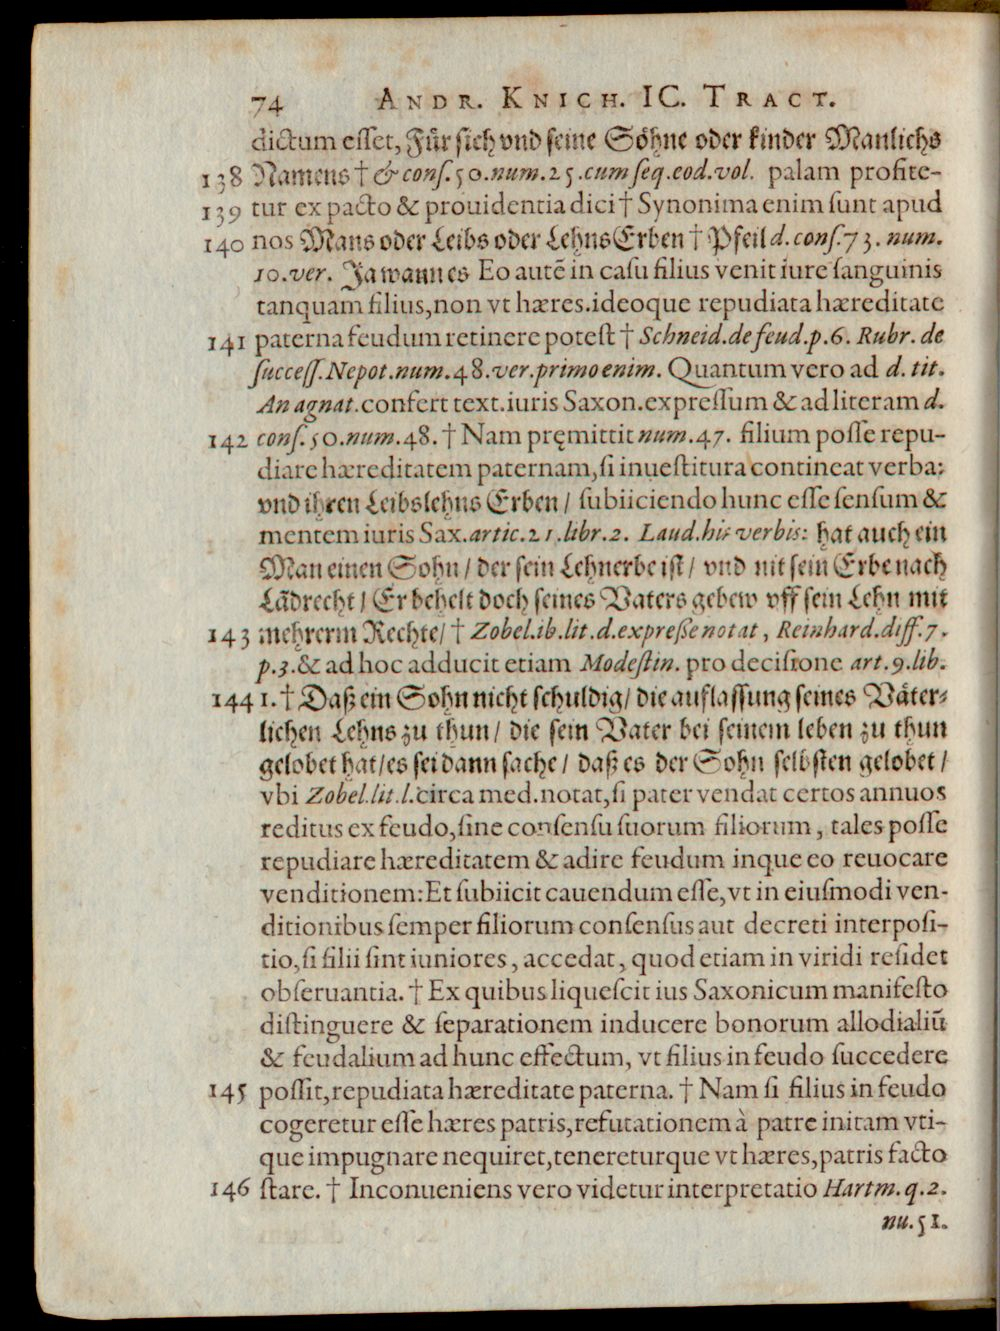 74 ANDR. KNICH. IC. TRACT.
dictum esset, Für sich vnd seine Söhne oder kinder Manlichs
138 Namens † & cons. 50. num. 25. cum seq. eod. vol. palam profite-
139 tur ex pacto & prouidentia dici † Synonima enim sunt apud
140 nos Mans oder Leibs oder LehnsErben † Pfeil d. cons. 73. num.
10. ver. Ja wann es Eo autē in casu filius venit iure sanguinis
tanquam filius, non vt hæres. ideoque repudiata hæreditate
141 paterna feudum retinere potest † Schneid. de feud. p. 6. Rubr. de
success. Nepot. num. 48. ver. primo enim. Quantum vero ad d. tit.
An agnat. confert text. iuris Saxon. expressum & ad literam d.
142 cons. 50. num. 48. † Nam pręmittit num. 47. filium posse repu-
diare hæreditatem paternam, si inuestitura contineat verba:
vnd ihren Leibslehns Erben / subiiciendo hunc esse sensum &
mentem iuris Sax. artic. 21. libr. 2. Laud. his verbis: hat auch ein
Man einen Sohn / der sein Lehnerbe ist / vnd nit sein Erbe nach
Lādrecht / Er behelt doch seines Vaters gebew vff sein Lehn mit
143 mehrerm Rechte / † Zobel. ib. lit. d. expreße notat, Reinhard. diff. 7.
p. 3. & ad hoc adducit etiam Modestin. pro decisione art. 9. lib.
144 1. † Daß ein Sohn nicht schuldig / die auflassung seines Väter-
lichen Lehns zu thun / die sein Vater bei seinem leben zu thun
gelobet hat / es sei dann sache / daß es der Sohn selbsten gelobet /
vbi Zobel. lit. l. circa med. notat, si pater vendat certos annuos
reditus ex feudo, sine consensu suorum filiorum, tales posse
repudiare hæreditatem & adire feudum inque eo reuocare
venditionem: Et subiicit cauendum esse, vt in eiusmodi ven-
ditionibus semper filiorum consensus aut decreti interposi-
tio, si filii sint iuniores, accedat, quod etiam in viridi residet
obseruantia. † Ex quibus liquescit ius Saxonicum manifesto
distinguere & separationem inducere bonorum allodialiū
& feudalium ad hunc effectum, vt filius in feudo succedere
145 possit, repudiata hæreditate paterna. † Nam si filius in feudo
cogeretur esse hæres patris, refutationem à patre initam vti-
que impugnare nequiret, tenereturque vt hæres, patris facto
146 stare. † Inconueniens vero videtur interpretatio Hartm. q. 2.
nu. 51.